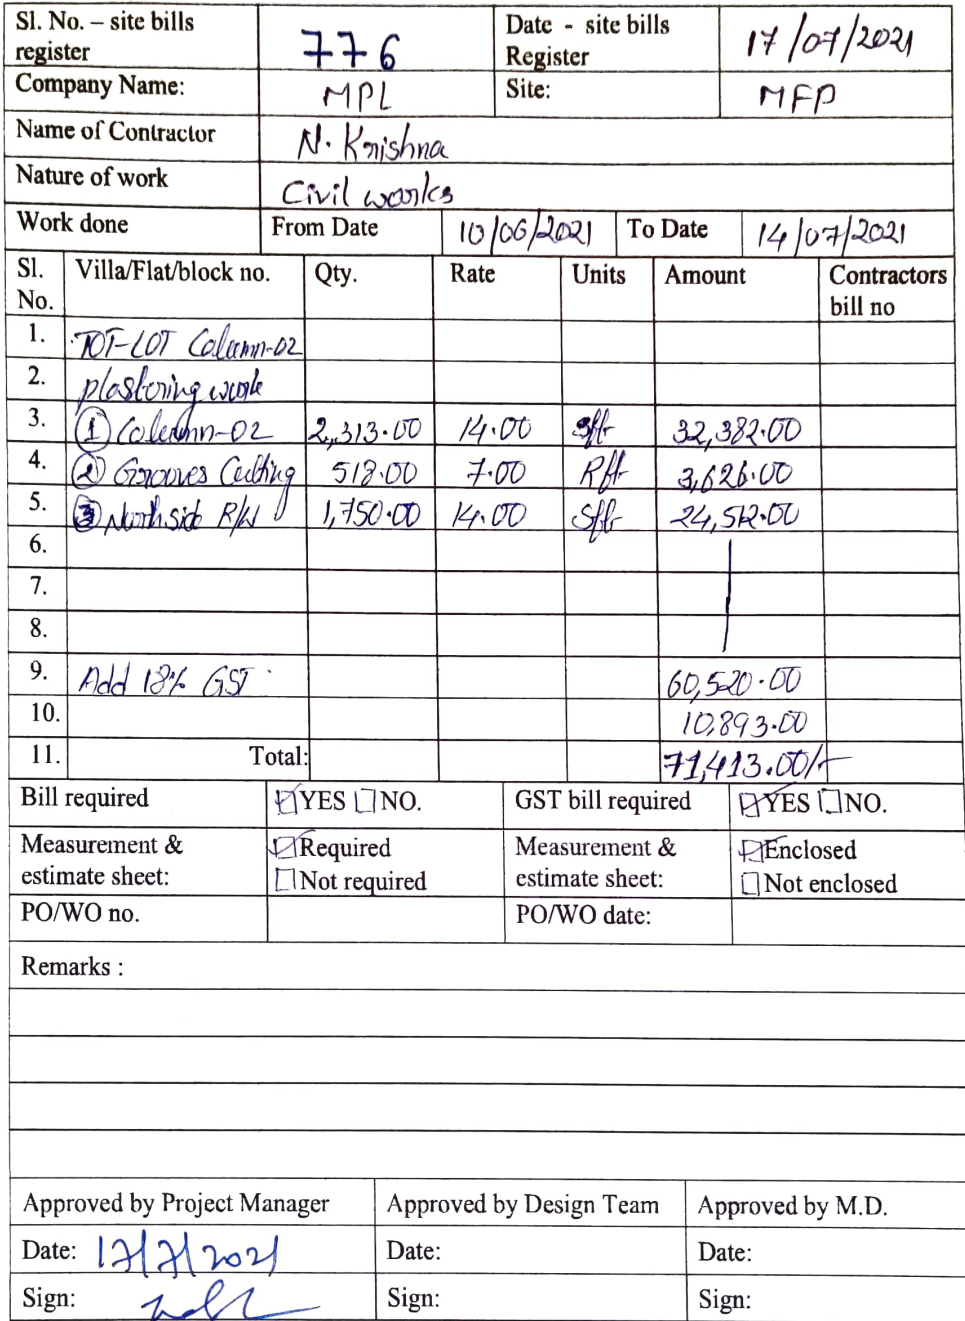 Sl. No. – site bills register 776 Date - site bills Register 17/07/2021
Company Name: MPL Site: MFP
Name of Contractor N. Krishna
Nature of work Civil works
Work done From Date 10/06/2021 To Date 14/07/2021
Sl. No. Villa/Flat/block no. Qty. Rate Units Amount Contractors bill no
1. TOT-LOT Column-02
2. plastering work
3. ① Column-02 2,313.00 14.00 Sft 32,382.00
4. ② Grooves Cutting 518.00 7.00 Rft 3,626.00
5. ③ North side R/W 1,750.00 14.00 Sft 24,512.00
6.
7.
8.
9. Add 18% GST 60,520.00
10. 10,893.00
11. Total: 71,413.00/-
Bill required YES NO. GST bill required YES NO.
Measurement & estimate sheet: Required Not required Measurement & estimate sheet: Enclosed Not enclosed
PO/WO no. PO/WO date:
Remarks :
Approved by Project Manager Approved by Design Team Approved by M.D.
Date: 17/7/2021 Date: Date:
Sign: Sign: Sign: